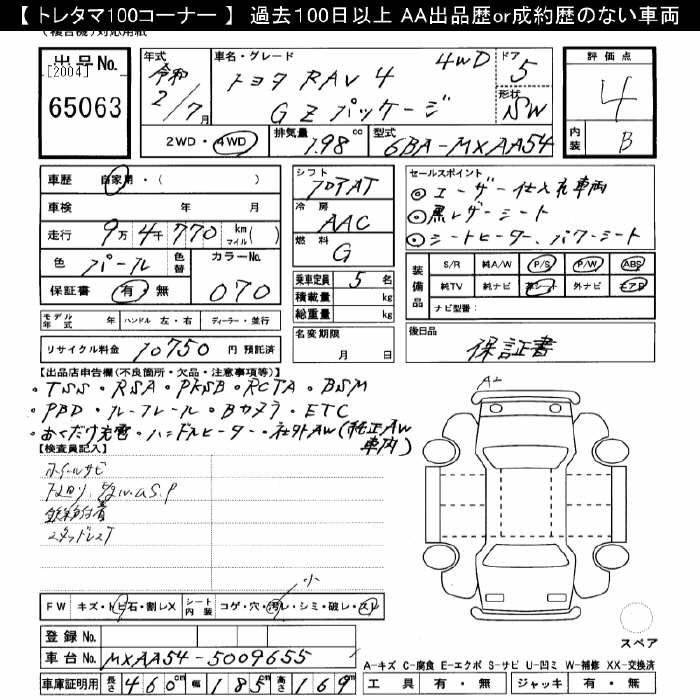 【 トレタマ100コーナー 】 過去100日以上 AA出品歴or成約歴のない車両
(複合機)対応用紙
出品No.
[2004]
65063
年式
令和
2/7月
車名・グレード
トヨタ RAV4 4WD
GZパッケージ
ドア
5
形状
SW
評価点
4
内装 B
2WD・4WD
排気量 1.98 cc
型式 6BA-MXAA54
車歴 自家用・( )
車検 年 月
走行 9万4千770 km マイル( )
色 パール 色替 カラーNo.
070
保証書 有 無
シフト
フロアAT
冷房
AAC
燃料
G
乗車定員 5 名
積載量 kg
総重量 kg
セールスポイント
◎ユーザー仕入れ車両
◎黒レザーシート
◎シートヒーター、パワーシート
装備品
S/R 純A/W P/S P/W ABS
純TV 純ナビ 革シート 外ナビ エアB
ナビ型番:
モデル年式 年 ハンドル 左・右 ディーラー・並行
リサイクル料金 10750 円 預託済
名変期限
月 日
後日品
保証書
【出品店申告欄(不良箇所・欠品・注意事項等)】
・TSS・RSA・PKSB・RCTA・BSM
・PBD・ルーフレール・Bカメラ・ETC
・おくだけ充電・ハンドルヒーター・社外AW(純正AW
車内)
【検査員記入】
ホイールサビ
スタッドレスT
A2
FW キズ・トビ石・割レX シート内装 コゲ・穴・汚レ・シミ・破レ・スレ
小
登録No.
車台No. MXAA54-5009655
車庫証明用 長さ 460cm 幅 185cm 高さ 169cm
スペア
A-キズ C-腐食 E-エクボ S-サビ U-凹ミ W-補修 XX-交換済
工具 有・無 ジャッキ 有・無